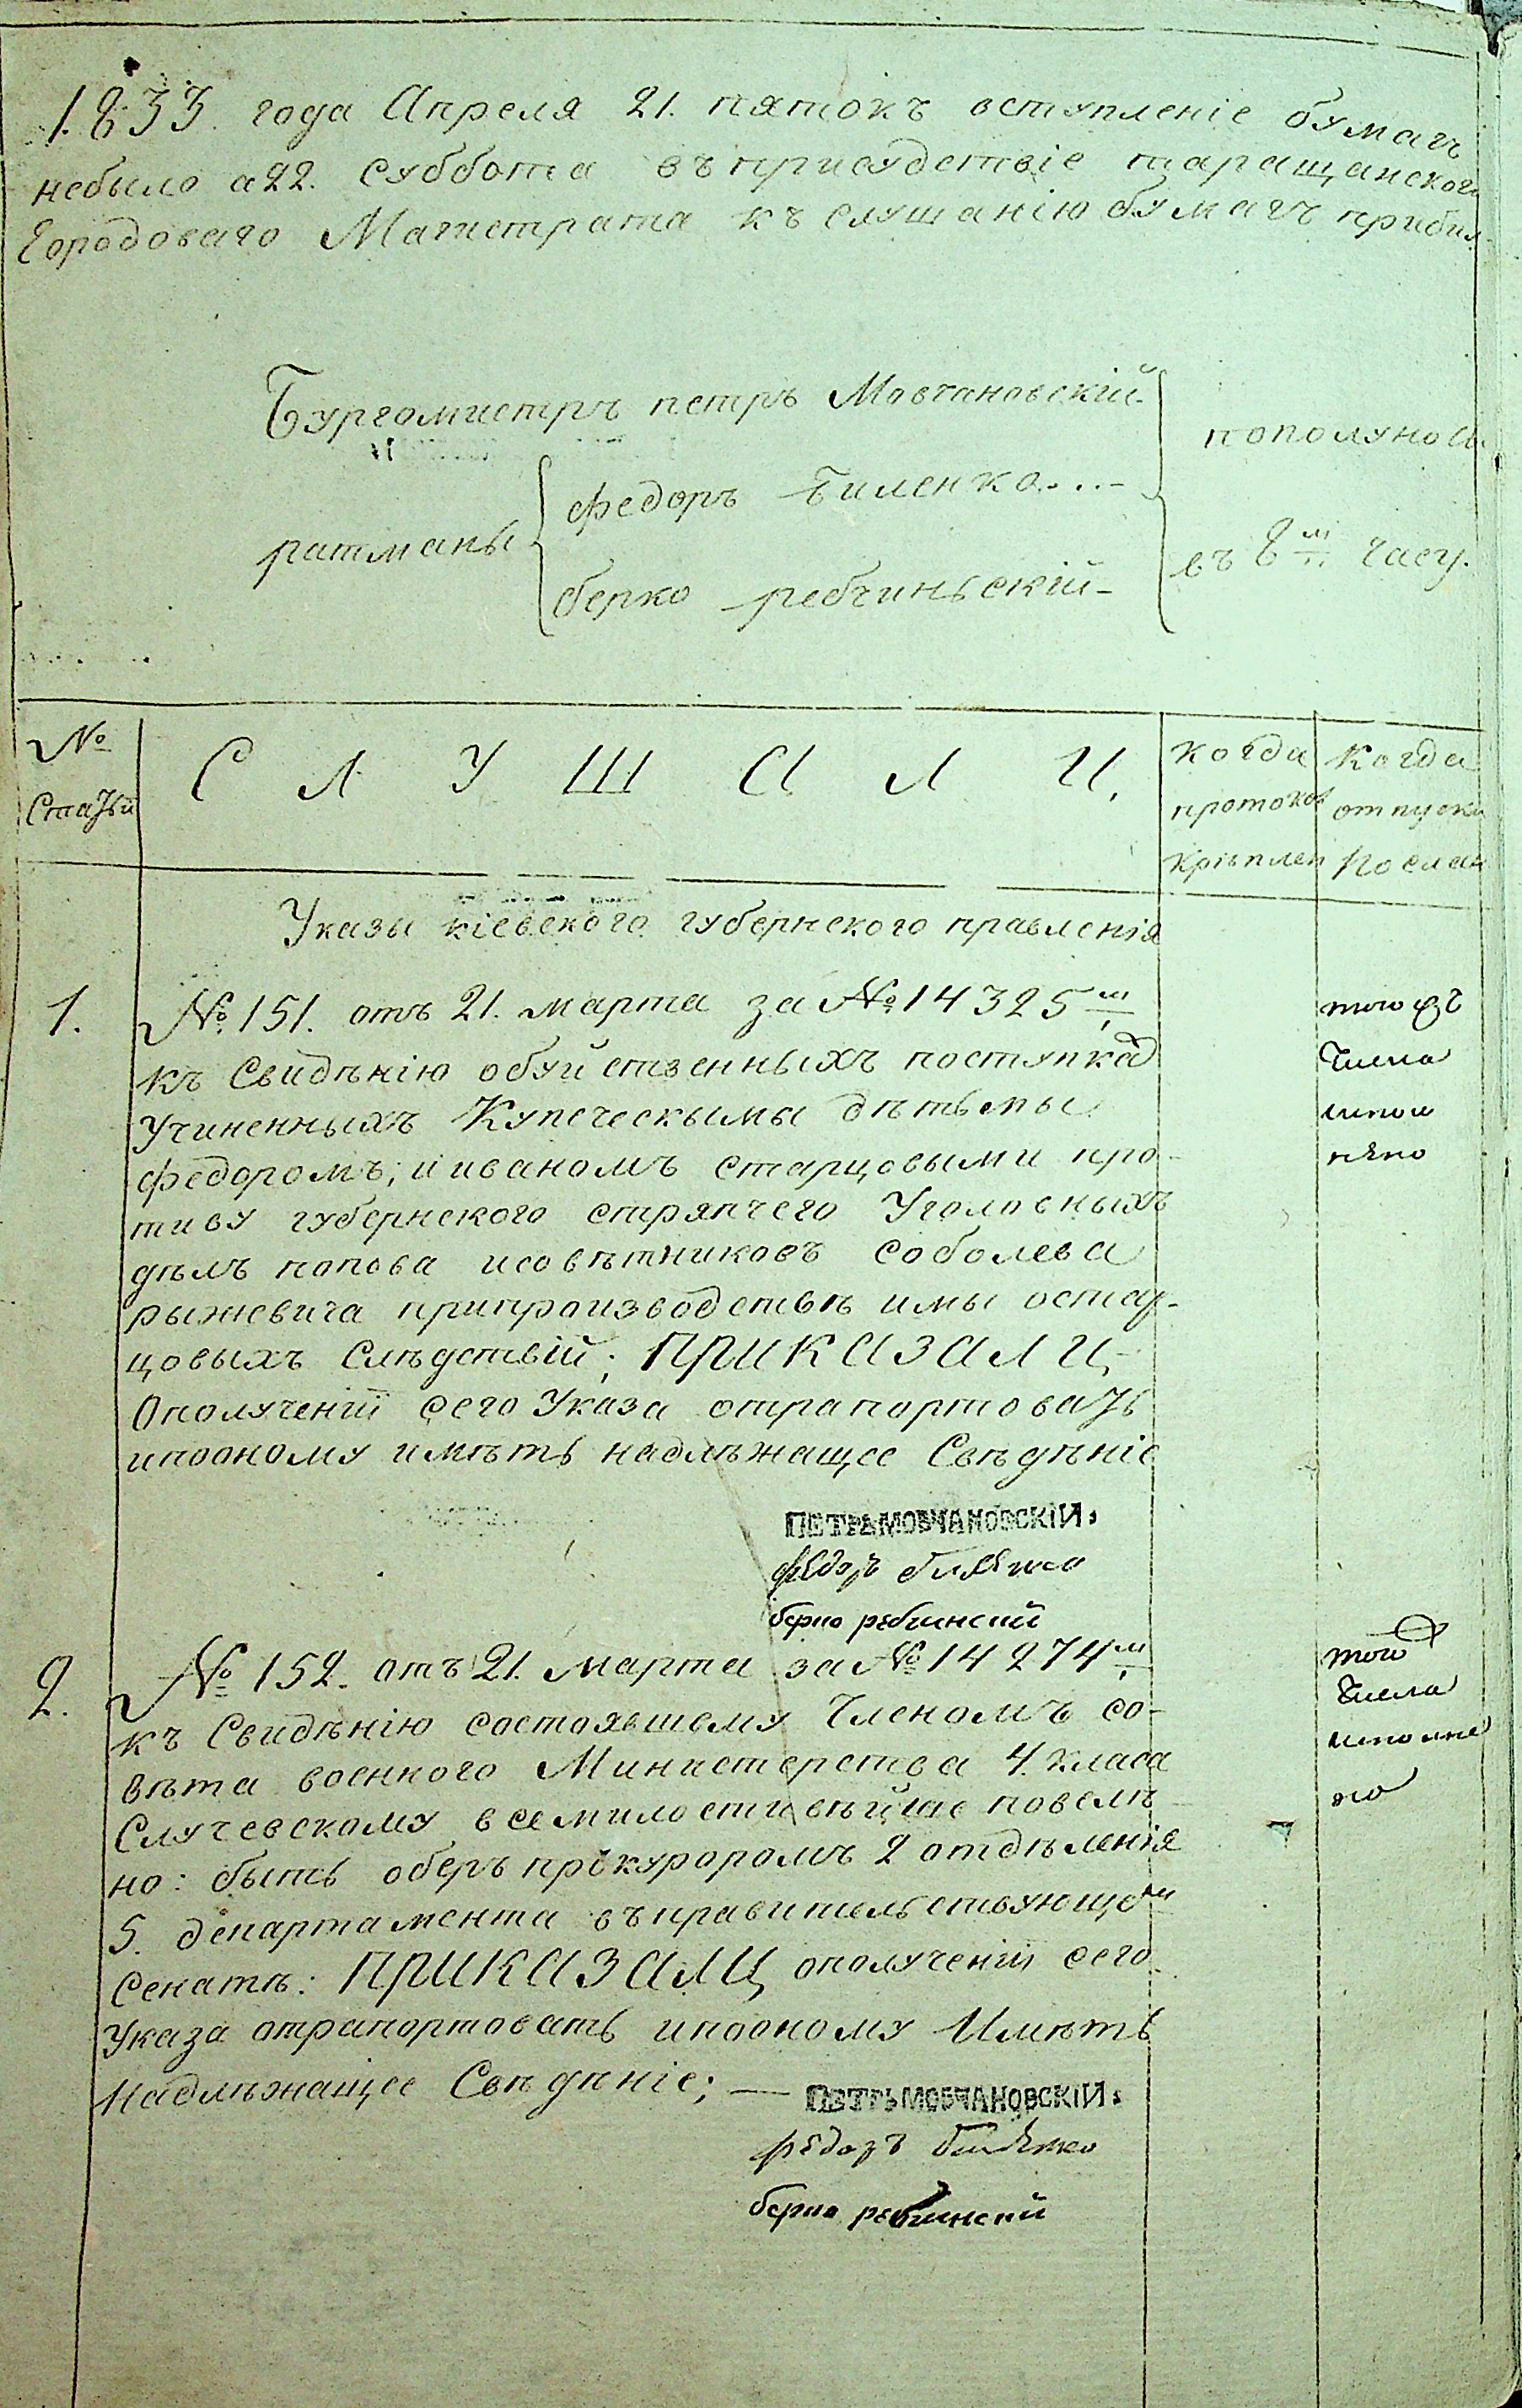 1833 года Апреля 21. пятокъ вступленіе бумагъ
небыло а 22. суббота въ присудствіе таращанского
Городоваго Магистрата къ слушанію бумагъ прибил
Бургомистръ петръ Мовчановскій
пополуноч.
федоръ Биленко
ратманы
въ 8м часу.
берко ребчиньскій
№ Статьи
С Л У Ш А Л И.
когда протокол кріъплен
когда отпуски послан
Указы кіевского губернского правленія
1.
№ 151. отъ 21. марта за № 14325м
къ Свидѣнію обуйственныхъ поступкад
Учиненныхъ Купеческымы дѣтьмы
федоромъ; и иваномъ старцовыми про-
тиву губернского стряпчего Уголовныхъ
дѣлъ попова исовѣтниковъ соболева
рыжевича припроизводствѣ имы остар-
цовыхъ Слѣдствій; ПРИКАЗАЛИ
Ополученіи сего Указа отрапортовать
ипооному имѣть надлѣжащее Свѣдѣніе
того числа
ПЕТРЪ МОВЧАНОВСКІЙ.
федоръ биленко
берко ребчинский
2.
№ 152. отъ 21. марта за № 14274м
къ Свидѣнію состоявшему Членомъ со-
вѣта военного Министерства 4. класа
Случевскому всемилостивѣйше повелѣ-
но: быть оберъ прокуроромъ 2 отдѣленія
5. департамента въ правительствующем
Сенатѣ: ПРИКАЗАЛИ ополученіи сего
Указа отрапортовать ипооному Имѣть
Надлѣжащее Свѣдѣніе; —
того
числа
исполне
но
ПЕТРЪ МОВЧАНОВСКІЙ.
федоръ биленко
берко ребчинский